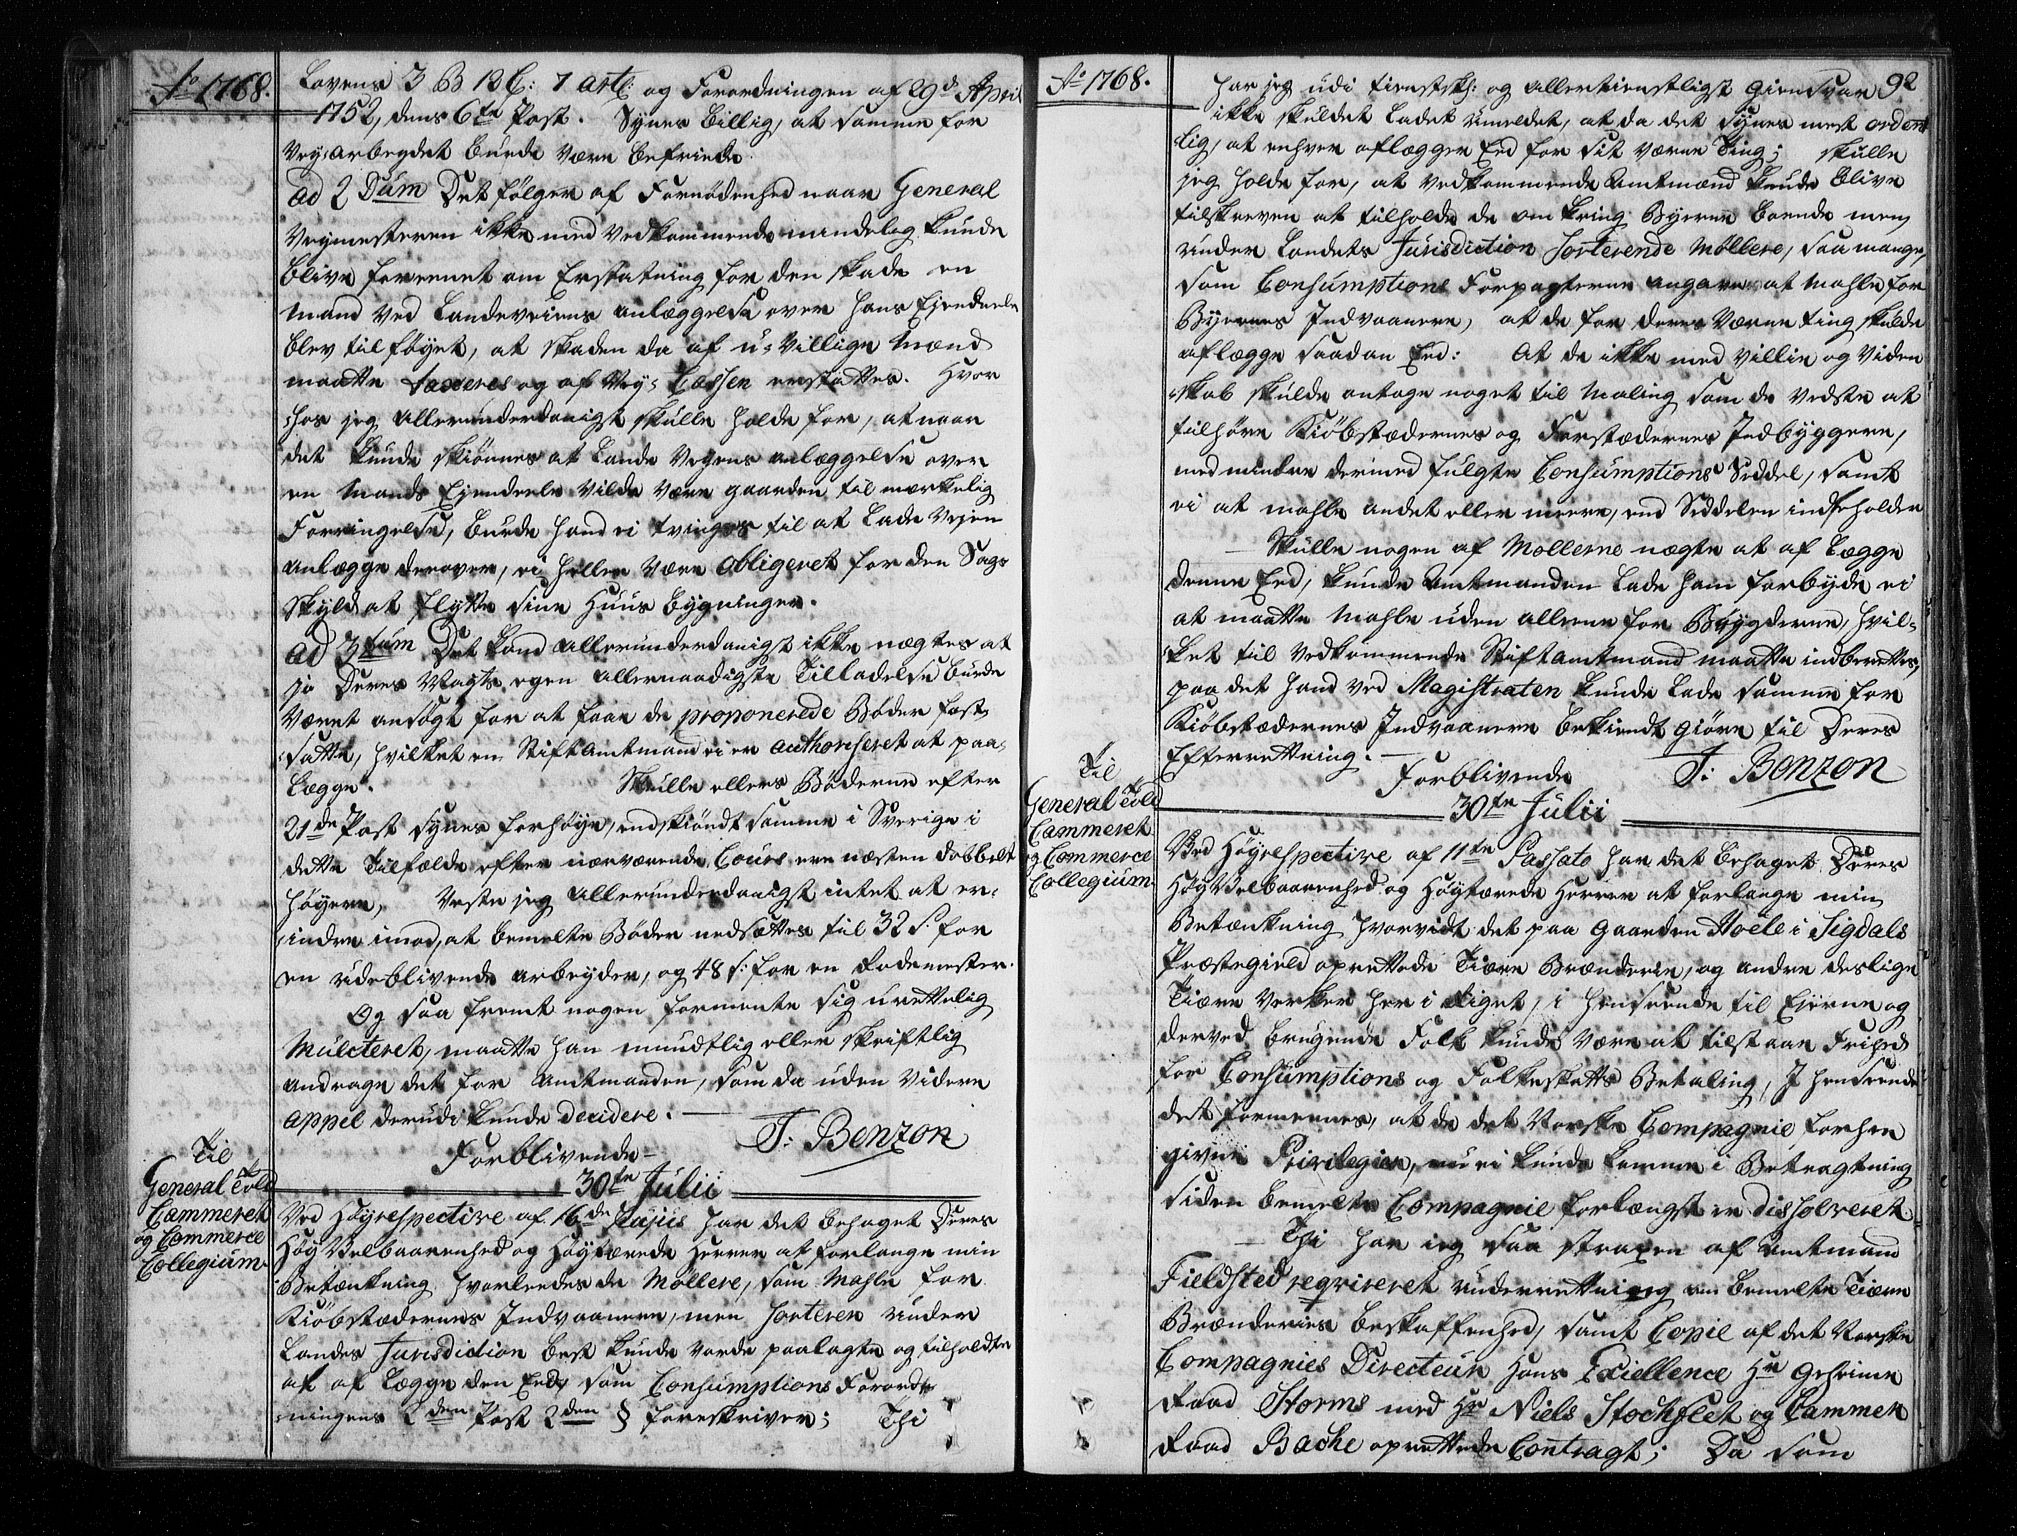 Ao 1768.
Lovens 3 B 18 C: 7 artl: og Forordningen af 29de April
1752, dens 6te Post. Synes billig, at samme for
Vey-Arbeydet burde være befriede.
Ad 2dum Det følger af Fornødenhed naar General
Veymesteren ikke med vedkommende mindelog kunde
blive foreenet om Erstatning for den skade en
Mand ved Landeveiens anlæggelse over hans Ejendeele
blev tilføyet, at skaden da af u-villige Mænd
maatte taxeres og af Vey-Cassen erstattes. Hvor
hos jeg allerunderdanigst skulle holde for, at naar
det kunde skiønnes at Lande Veyens anlæggelse over
en Mands Ejendeele vilde være gaarden til merkelig
Forringelse, burde hand ei tvinges til at lade Vejen
anlægge derover, ei heller være obligeret for den Sags
skyld at flytte sine Huus bygninger.
Ad 3tium Det kand allerunderdanigst ikke nægtes at
jo Deres Mayts egen allernaadigste Tilladelse burde
været ansøgt for at faae de proponerede Bøder fast-
satte, hvilket en Stiftamtmand ei er authoriseret at paa-
lægge. Skulle ellers Bøderne efter
21de Post synes forhøye, endskiøndt samme i Sverige i
dette Tilfælde efter nærværende Cours ere næsten dobbelt
høyere, veste jeg allerunderdanigst intet at er-
indre imod, at bemelte Bøder nedsættes til 32 s: for
en udeblivende arbeyder, og 48 s: for en Rodemester.
Og saa fremt nogen formente sig urettelig
Mulcteret, maatte han mundtlig eller skriftlig
andrage det for Amtmanden, som da uden videre
appel derudi kunde decidere.
Forblivende J: Benzon
30te Julii
Til
General Told
Cammeret
og Commerce
Collegium.
Ved Høyrespective af 16de hujus har det behaget Deres
Høy Velbaarenhed og Høytærede Herrer at forlange min
Betænkning hvorleedes de Møllere, som Mahle for
Kiøbstædernes Indvaanere, men sorterer under
Landes Jurisdiction best kunde vorde paalagte og tilholdte
at aflægge den Eed, som Consumptions Forord-
ningens 2den Post 2den § foreskriver; Thi
Ao 1768.
92
har jeg udi tienstsk: og allertienstligst Giensvar
ikke skuldet ladet umeldet, at da det synes mest ordent
lig, at enhver aflægger Eed for sit Værne Ting; skulle
jeg holde for, at vedkommende Amtmænd kunde blive
tilskreven at tilholde de omkring Byerne boende men
under Landets Jurisdiction sorterende Møllere, saa mange
som Consumptions Forpagterne angave at Mahle for
Byernes Indvaanere, at de for deres Værne Ting skulde
aflægge saadan Eed: At de ikke med Villie og Viden
skab skulde antage noget til Maling som de vedste at
tilhøre Kiøbstædernes og Forstædernes Indbyggere,
med mindre dermed fulgte Consumptions Seddel, samt
ei at mahle andet eller meere, end Seddelen indeholder
Skulle nogen af Møllerne nægte at aflægge
denne Eed, kunde Amtmanden lade ham forbyde ei
at maatte Mahle uden alleene for Bøygderne, hvil-
ket til vedkommende Stiftamtmand maatte indberettes,
paa det hand ved Magistraten kunde lade samme for
Kiøbstædernes Indvaanere bekiendtgiøre til Deres
Efterrettning.
Forblivende J: Benzon
30te Julii
Til
General Told
Cammeret
og Commerce
Collegium.
Ved Høyrespective af 11te Passato har det behaget Deres
Høy Velbaarenhed og Høytærede Herrer at forlange min
Betænkning hvorvidt det paa Gaarden Hoele i Sigdals
Præstegield oprettede Tiære Brænderie, og andre deslige
Tiære Verker her i Riget, i henseende til Ejerne og
derved brugende Folk kunde være at tilstaae Frihed
for Consumptions og Folkeskatts Betaling, I henseende
det formeenes, at de det Norske Compagnie forhen
givne Privilegier, nu ei kunde komme i Betragtning
siden bemelte Compagnie forlængst er dissolveret.
Thi har jeg saa straxen af Amtmand
Fieldsted reqvireret underrettning om bemelte Tiære
Brænderies beskaffenhed, samt Copie af det Norske
Compagnies Directeur Hans Excellence Hr Geheime
Raad Storms med Hr Niels Stochflet og Cammer
Raad Bache oprettede Contragt; Da som